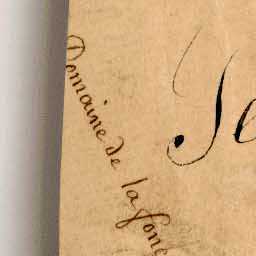 Domaine de la fonc
Je